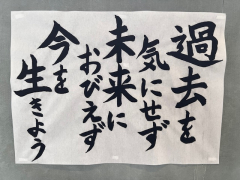 過去を
気にせず
未来に
おびえず
今を
生きよう